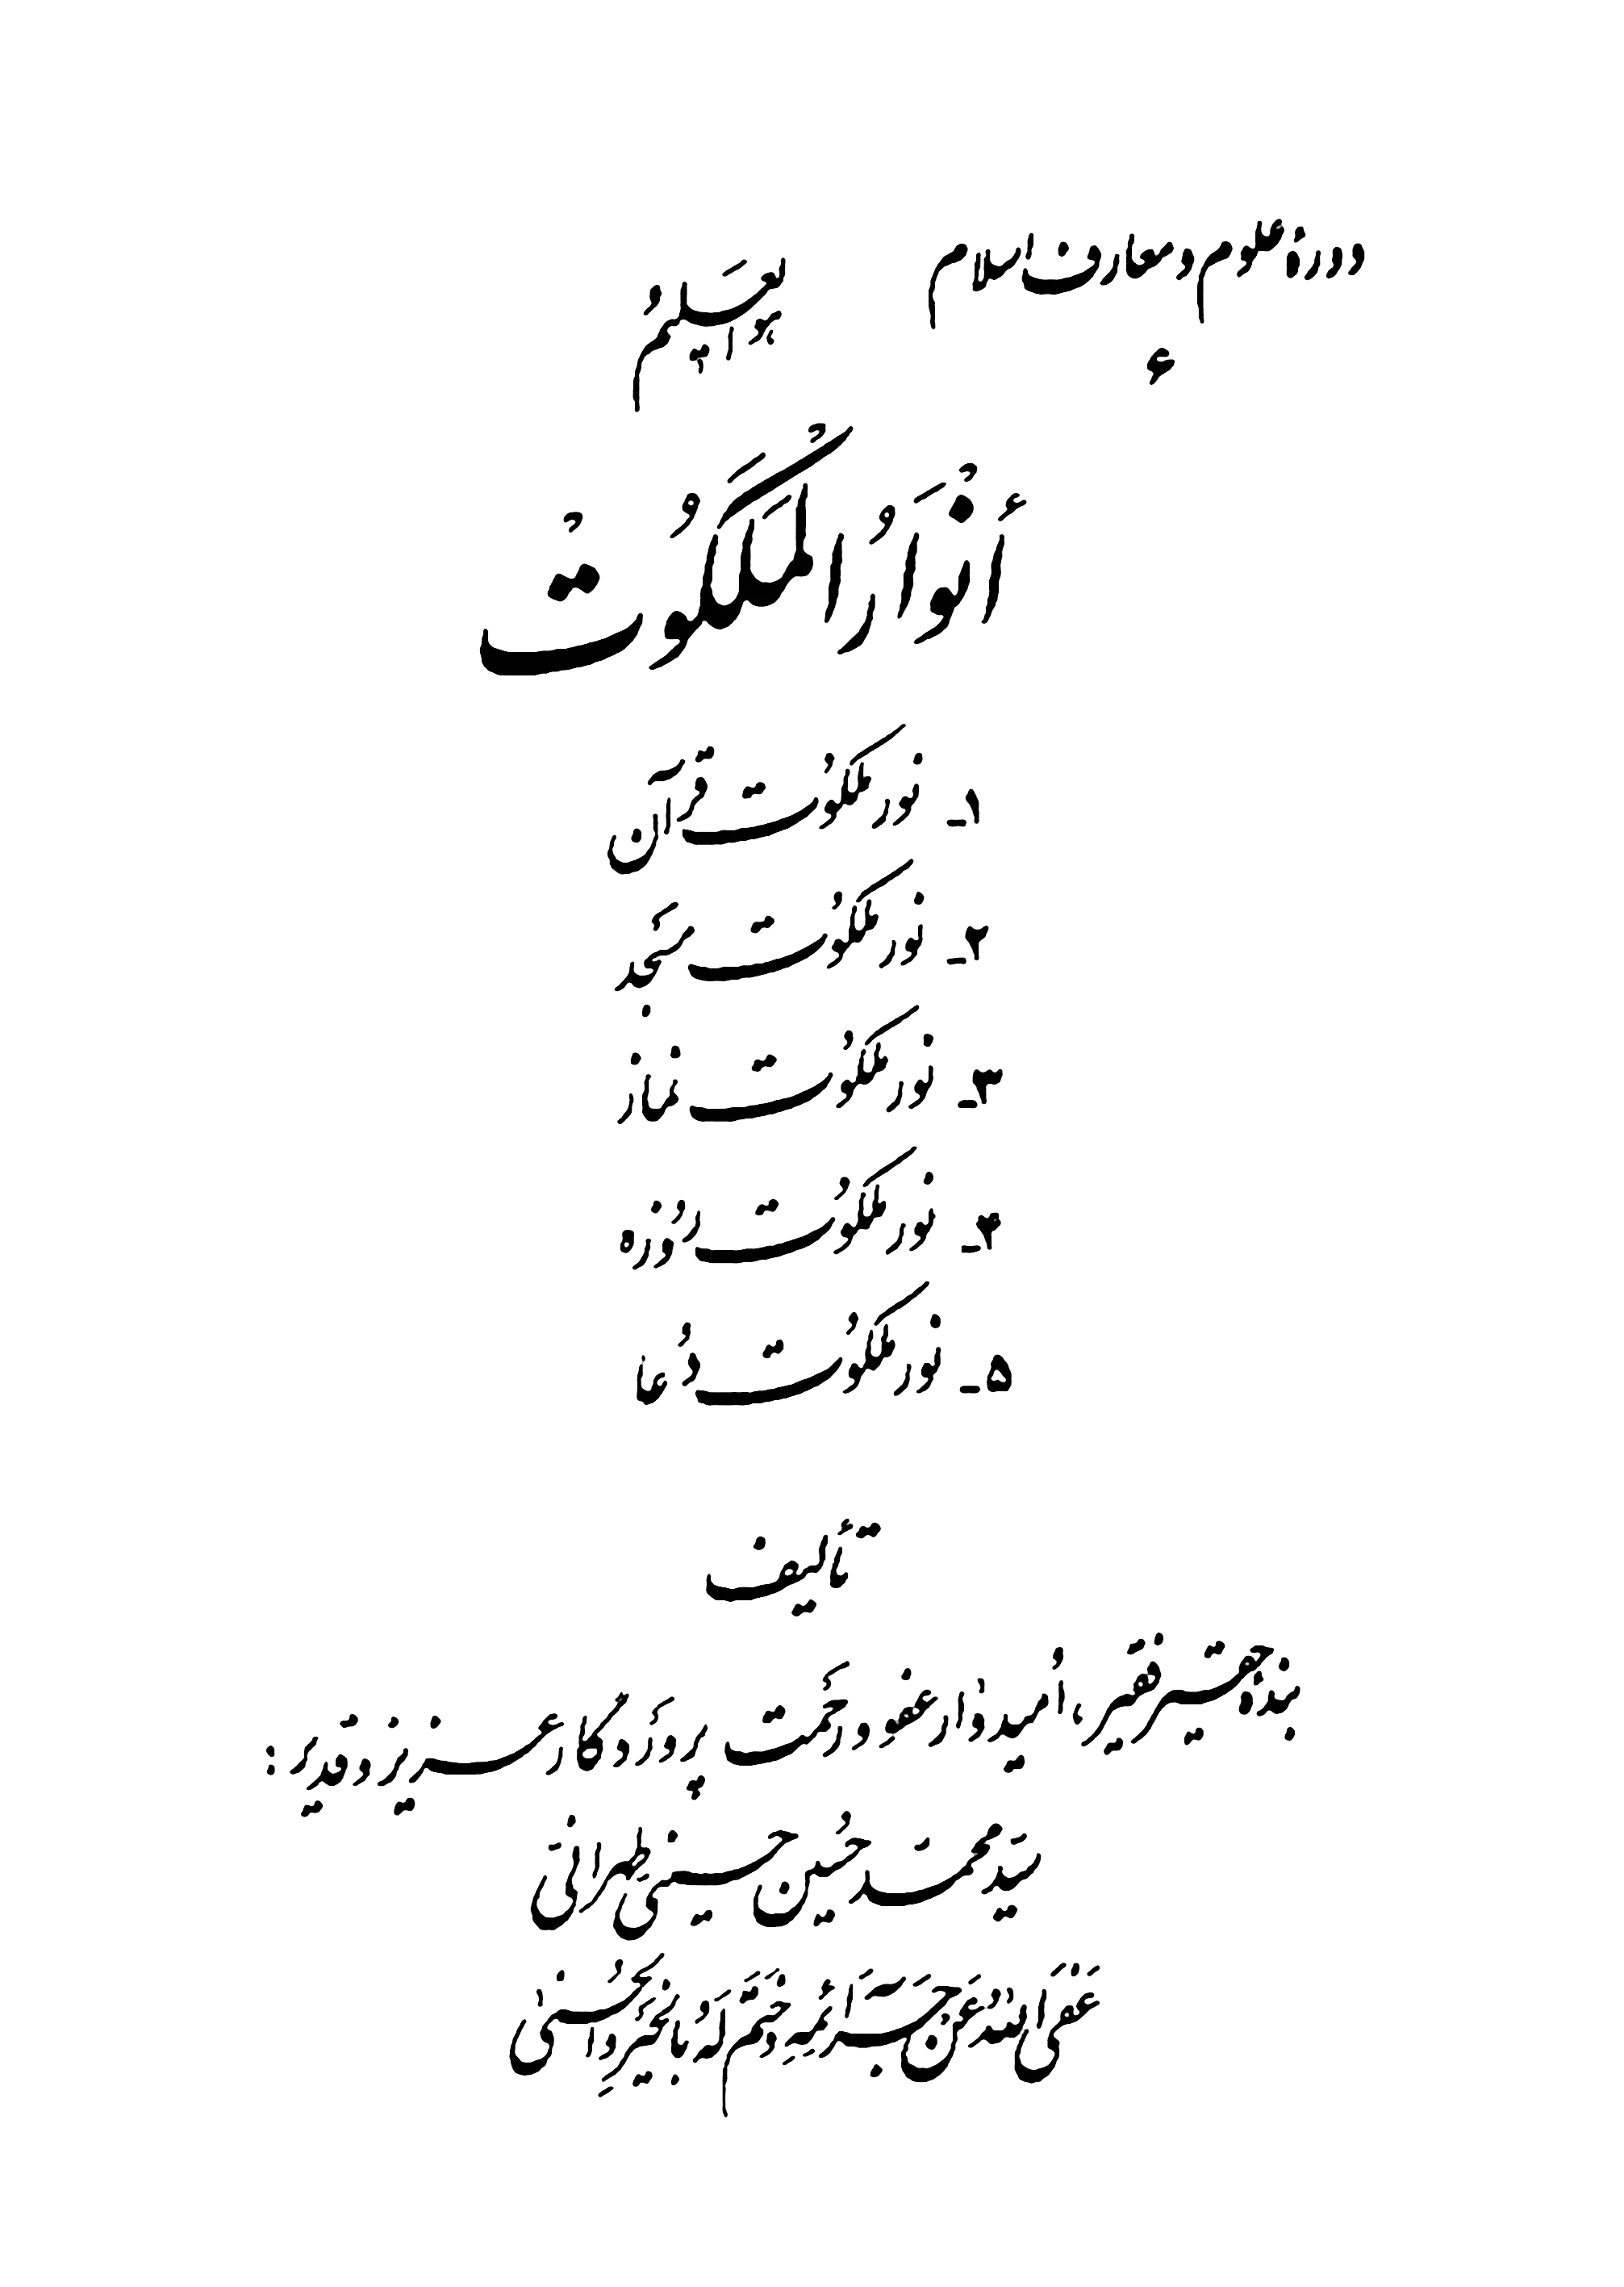 دورهٔ علوم و معارف اسلام
۶
هُوَ العَلیمُ
أَنْوَارُ الْمَلَكُوت
۱ـ نور ملکوت قرآن
۲ـ نور ملکوت مسجد
۳ـ نور ملکوت نماز
۴ـ نور ملکوت روزه
۵ـ نور ملکوت دُعا
تألیف
بندهٔ حقیر فقیر، امیدوار عفو و رحمت پروردگار عزیز و قدیر:
سیّد محمّد حُسین حسینی طهرانی
عَفَی اللهُ عَن جَرَائِمِهِ وَ خَتَمَ لَهُ بِالْخَیْرِ وَ الْحُسْنَی